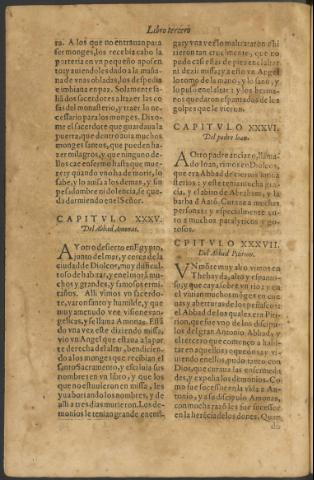 Libro tercero
ra. A los que no entrauan para
ser monges, los recebia cabo la
porteria en vn pequeño aposen
to: y auiendoles dado a la maña-
na de vnas obladas, los despedia
e imbiaua en paz. Solamente sa-
liã dos sacerdotes a tratar las co-
sas del monasterio, y traer lo ne-
cessario para los monges. Dixo-
me el sacerdote que guardaua la
puerta, que dentro auia muchos
monges santos, que pueden ha-
zer milagros, y que ninguno de-
llos cae enfermo hasta que mue-
re: y quando vno ha de morir, lo
sabe, y lo auisa a los demas, y sin
pesadumbre ni dolencia, se que-
da durmiendo en el Señor.
CAPITVLO XXXV.
Del Abbad Amonas.
AY otro desierto en Egypto,
junto del mar, y cerca de la
ciudad de Diolcos, muy dificul-
toso de habitar, y en el moran mu-
chos y grandes, y famosos ermi-
taños. Alli vimos vn sacerdo-
te, varon santo y humilde, y que
muy amenudo vee visiones an-
gelicas, y se llama Amonas. Està
do vna vez este diziendo missa,
vio vn Angel que estaua a la par
te derecha del altar, bendicien-
do a los monges que recibian el
santo Sacramento, y escriuia sus
nombres en vn libro, y que los
que no estuuieron en missa, les
yua borrando los nombres, y de
alli a tres dias murieron. Los de-
monios le tenian grande enemi-
gary vna vez lo maltrataron de hi
rieron tan cruelmente, que no
pudo
ni dezir missa, y este vn Angel
lo tomo de la mano, y lo sano, y
lo puso en el altar: y los herma-
nos quedaron espantados de los
golpes que le vieron.
CAPITVLO XXXVI.
Del padre Ioan.
A Otro padre anciano, llama-
do Ioan, vimos en Diolcos,
que era Abbad de
sterios: y este tenia mucha gra-
cia, y el abito de Abraham, y la
barba de Aarõ. Curaua a muchas
personas, y especialmente sano
a muchos paralyticos y go-
tosos.
CPITVLO XXXVII.
Del Abbad Pitirion.
VN môte muy alto vimos en
Thebayda, alto y espanto-
so, que caya sobre vn rio: y en el
viuian muchos monges en cue-
uas y aberturas de las peñas: este
el Abbad de los quales era Piti-
rion, que fue vno de los discipu-
los del gran Antonio Abbad, y
el tercero que començo a habi-
tar en aquellos
uiendo en ellos, pudo tanto con
Dios, que curaua las enfermeda
des, y expelia los demonios. Co
mo fue sucessor en la vida a An-
tonio, y a su discipulo Amonas,
con mucha razõ les fue sucessor
en la herencia de los dones. Quan
do